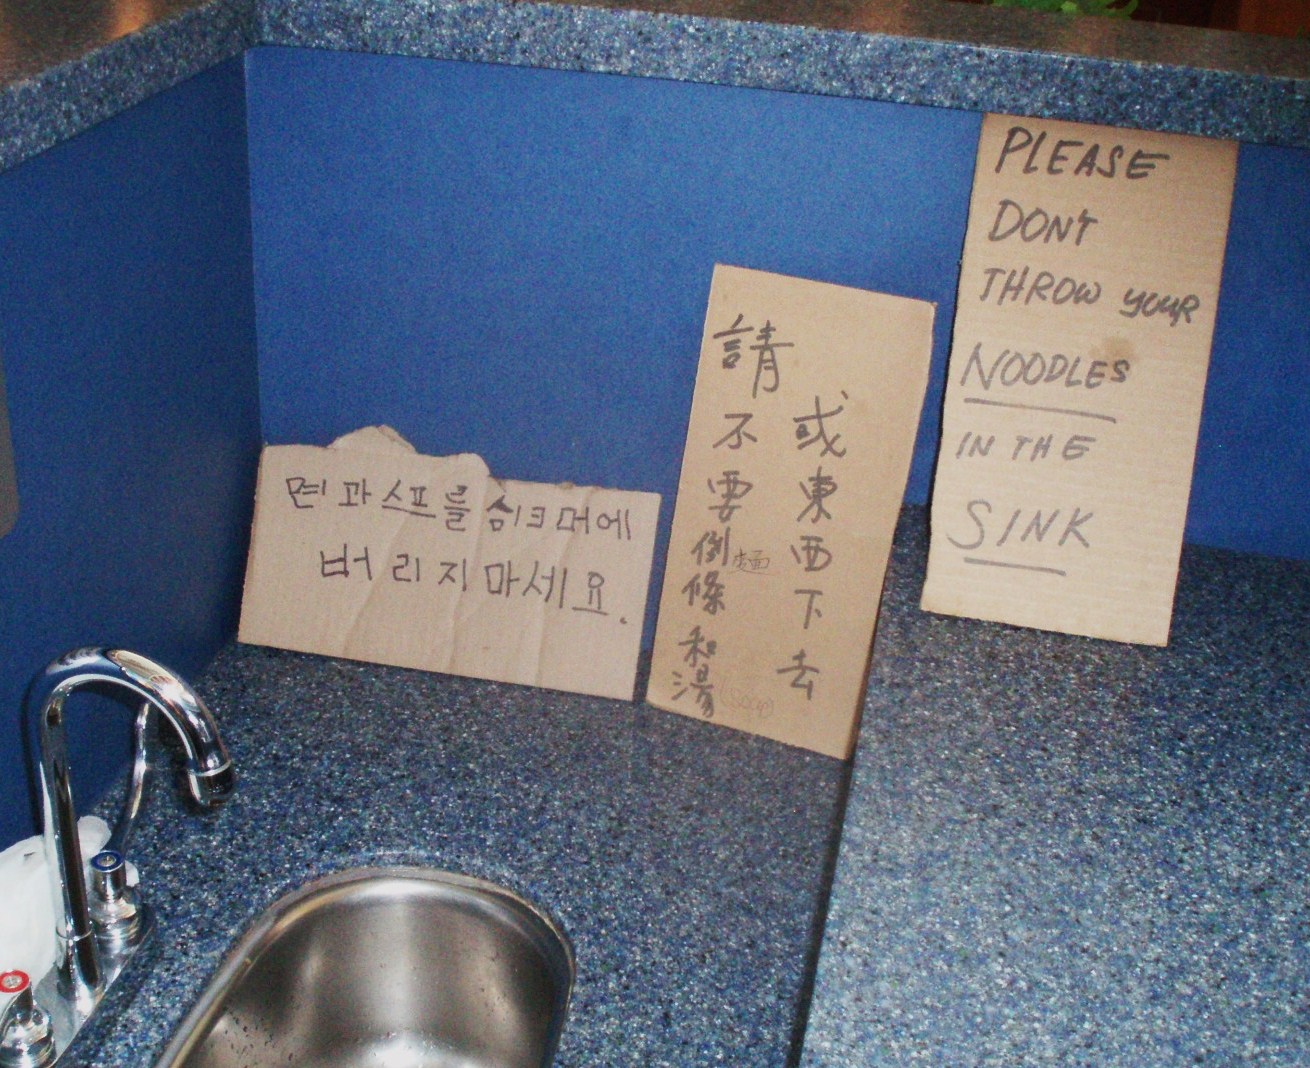 면과스프를 싱크머에
버리지마세요.
請不要倒麵條和湯
(Soup)
或東西下去
PLEASE
DONT
THROW YOUR
NOODLES
IN THE
SINK